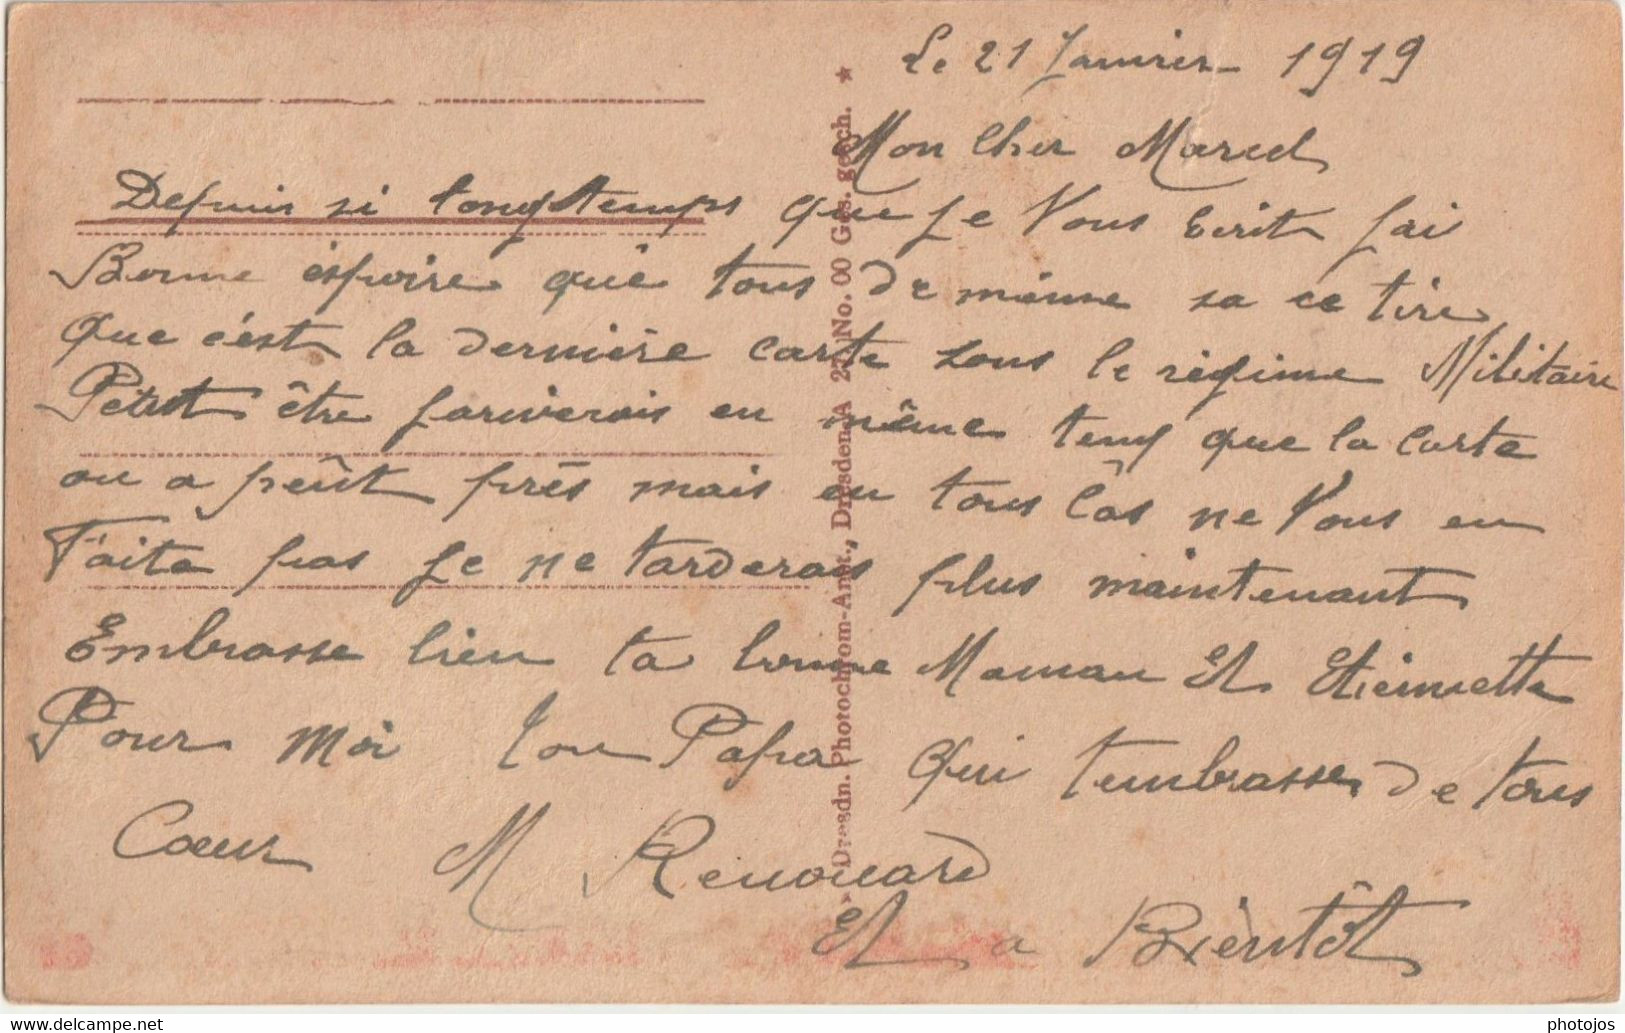 Le 21 Janvier 1919
Mon Cher Marcel
Depuis si longtemps que Je Vous Ecrit Jai
Bonne éspoire quê tous de même sa ce tire
que c'est la dernière carte sous le régime Militaire
Petût être Jariverais en même temp que la carte
ou a peût près mais en tous Câs ne Vous en
Faite pas Je ne tarderais plus maintenant
Embrasse bien ta bonne Maman Et Etiennette
Pour moi Ton Papa qui tembrasse de tous
Cœur M Renouard
Et a Bientôt
★ Dresdn. Photochrom-Anst., Dresden-A 27, No. 00 Ges. gesch. ★
www.delcampe.net
photojos